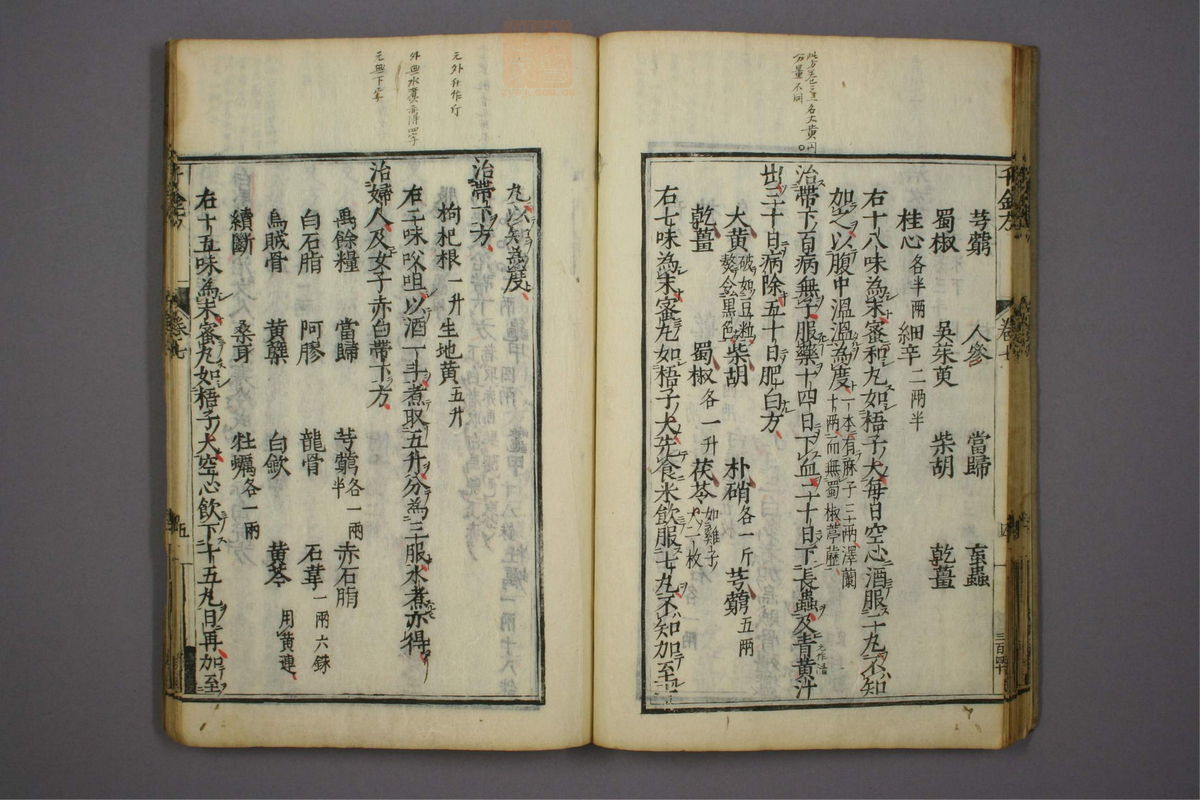 芎藭 人參 當歸 䖟蟲
蜀椒 吳茱萸 柴胡 乾薑
桂心各半兩 細辛二兩半
右十八味為末蜜和丸如梧子大每日空心酒服二十丸不知
加之以腹中溫溫為度一本有麻子三兩澤蘭十兩而無蜀椒葶藶
治帶下百病無子服藥十四日下血二十日下長蟲及青黃汁
出三十日病除五十日肥白方
大黃破如豆粒熬令黑色 柴胡 朴硝各一斤 芎藭五兩
乾薑 蜀椒各一升 茯苓如雞子大一枚
右七味為末蜜丸如梧子大先食米飲服七丸不知加至十
丸以知為度
治帶下方
枸杞根一升 生地黃五升
右二味㕮咀以酒一斗煮取五升分為三服水煮亦得
治婦人及女子赤白帶下方
禹餘糧 當歸 芎藭各一兩半 赤石脂
白石脂 阿膠 龍骨 石葦一兩六銖
烏賊骨 黃蘗 白蘞 黃芩用黃連
續斷 桑耳 牡蠣各一兩
右十五味為末蜜丸如梧子大空心飲下十五丸日再加至
千金方 卷七 四
三百四十
千金方 卷七 五
分量不同
元作清
元外升作斤
外